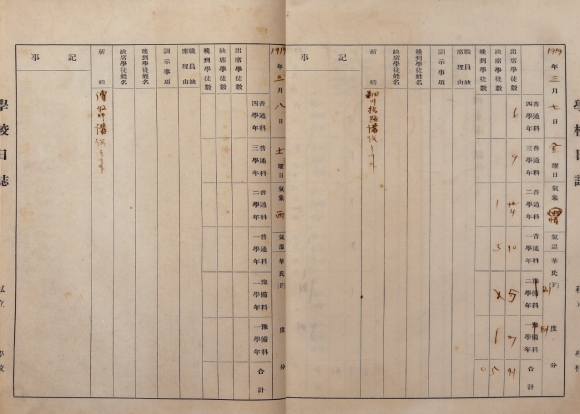 學校日誌 私立 學校
1919年三月七日 金曜日 氣象 晴 氣溫 華氏(F) 度 分
普通科四學年 普通科三學年 普通科二學年 普通科一學年 豫備科二學年 豫備科一學年 合計
出席學徒數 6 9 10 5 7 41
缺席學徒數 1 3 1 5
晚到學徒數 0
職員缺席理由
訓示事項
晚到學徒姓名
缺席學徒姓名
祈禱
記事
1919年三月八日 土曜日 氣象 雨 氣溫 華氏(F) 度 分
普通科四學年 普通科三學年 普通科二學年 普通科一學年 豫備科二學年 豫備科一學年 合計
出席學徒數
缺席學徒數
晚到學徒數
職員缺席理由
訓示事項
晚到學徒姓名
缺席學徒姓名
祈禱
記事
學校日誌 私立 學校